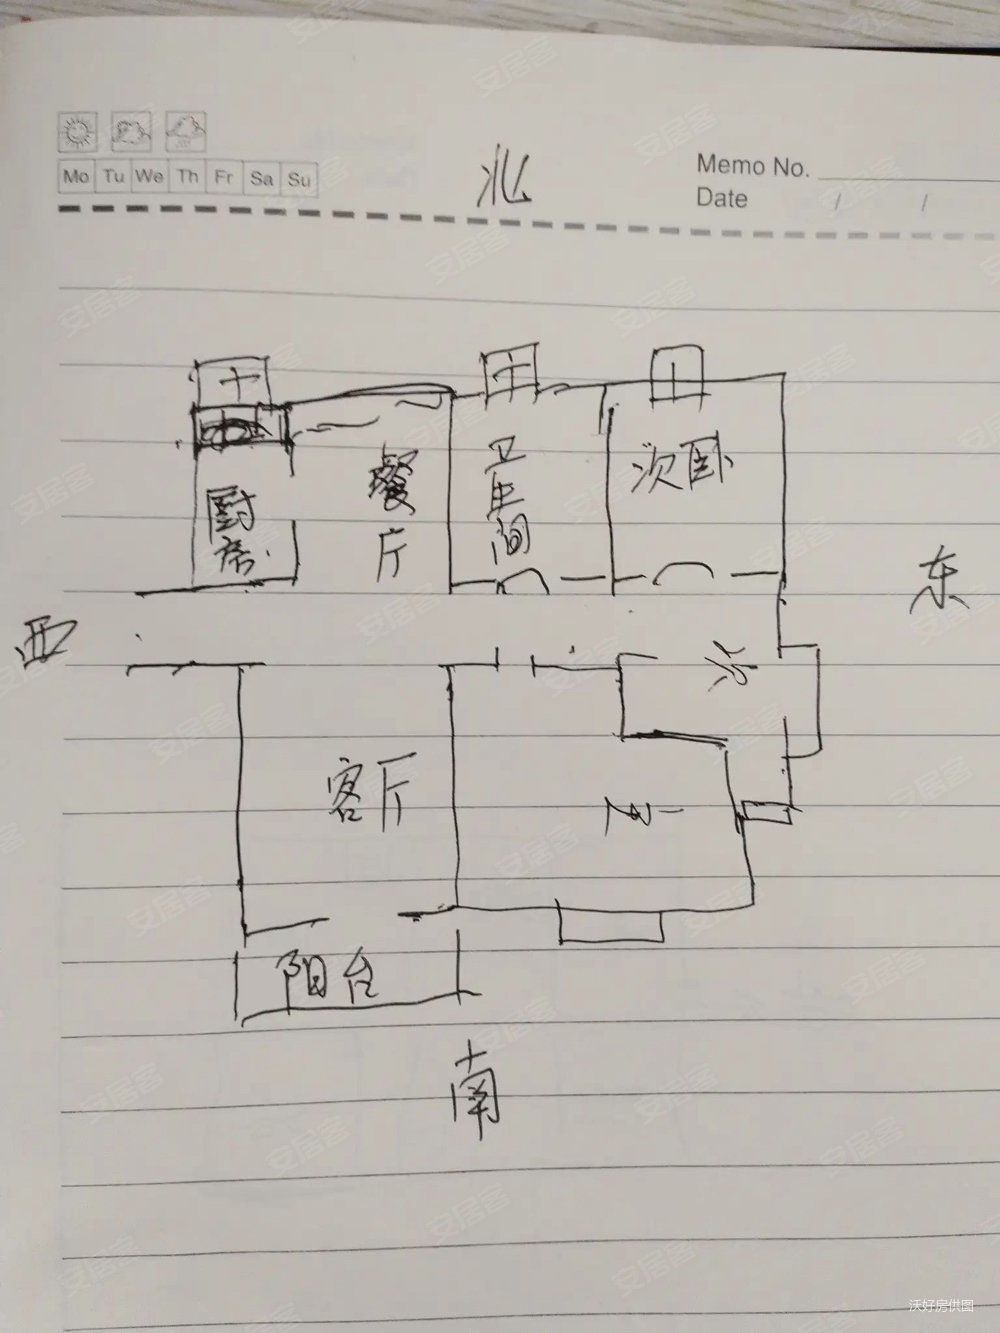 Mo Tu We Th Fr Sa Su
Memo No.
Date / /
北
厨房
餐厅
卫生间
次卧
东
西
客厅
阳台
南
安居客
沃好房供图